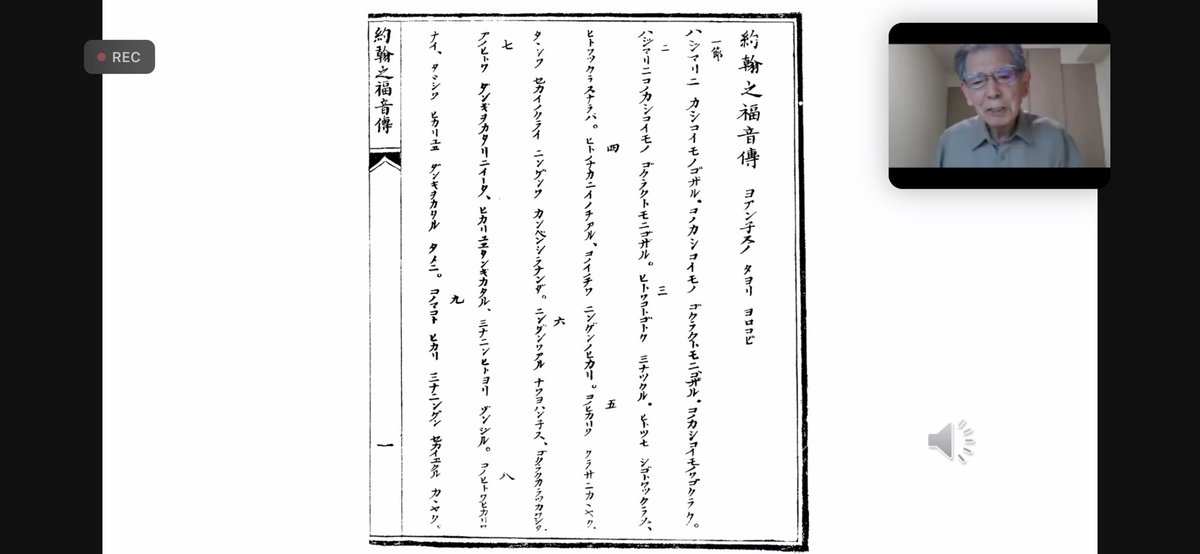 REC
約翰之福音傳 ヨアンチスノ タヨリ ヨロコビ
一節
ハジマリニ カシコイモノゴザル。コノカシコイモノ ゴクラクトモニゴザル。コノカシコイモノワゴクラク。
二 三
ハジマリニコノカシコイモノ ゴクラクトモニゴザル。ヒトワコトゴトク ミナツクル。ヒトツモ シゴトワツクラヌ、
四 五
ヒトワツクラヌナラバ。ヒトノナカニイノチアル、コノイノチワ ニンゲンノヒカリ。コノヒカリワ クラサニカヽヤク、
六
タヽシワ セカイノクライ ニンゲンワ カンベンシラナンダ。ニンゲンワアル ナワヨハンチス、ゴクラクカラツカワシタ。
七 八
アノヒトワ ダンギヲカタリニイータ、ヒカリユエダンギカタル、ミナニンヒトヨリ ゾンジル。コノヒトワヒカリワ
九
ナイ、タヽシワ ヒカリユエ ダンギヲカタル タメニ。コノマコト ヒカリ ミナニンゲン セカイエクル カヽヤク。
約翰之福音傳
一